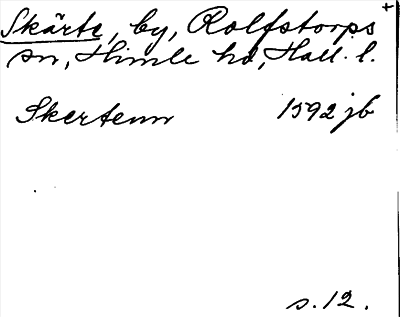 Skärte, by, Rolfstorps +
sn, Himle hd, Hall. l.
Skertenn 1592 jb
s. 12.